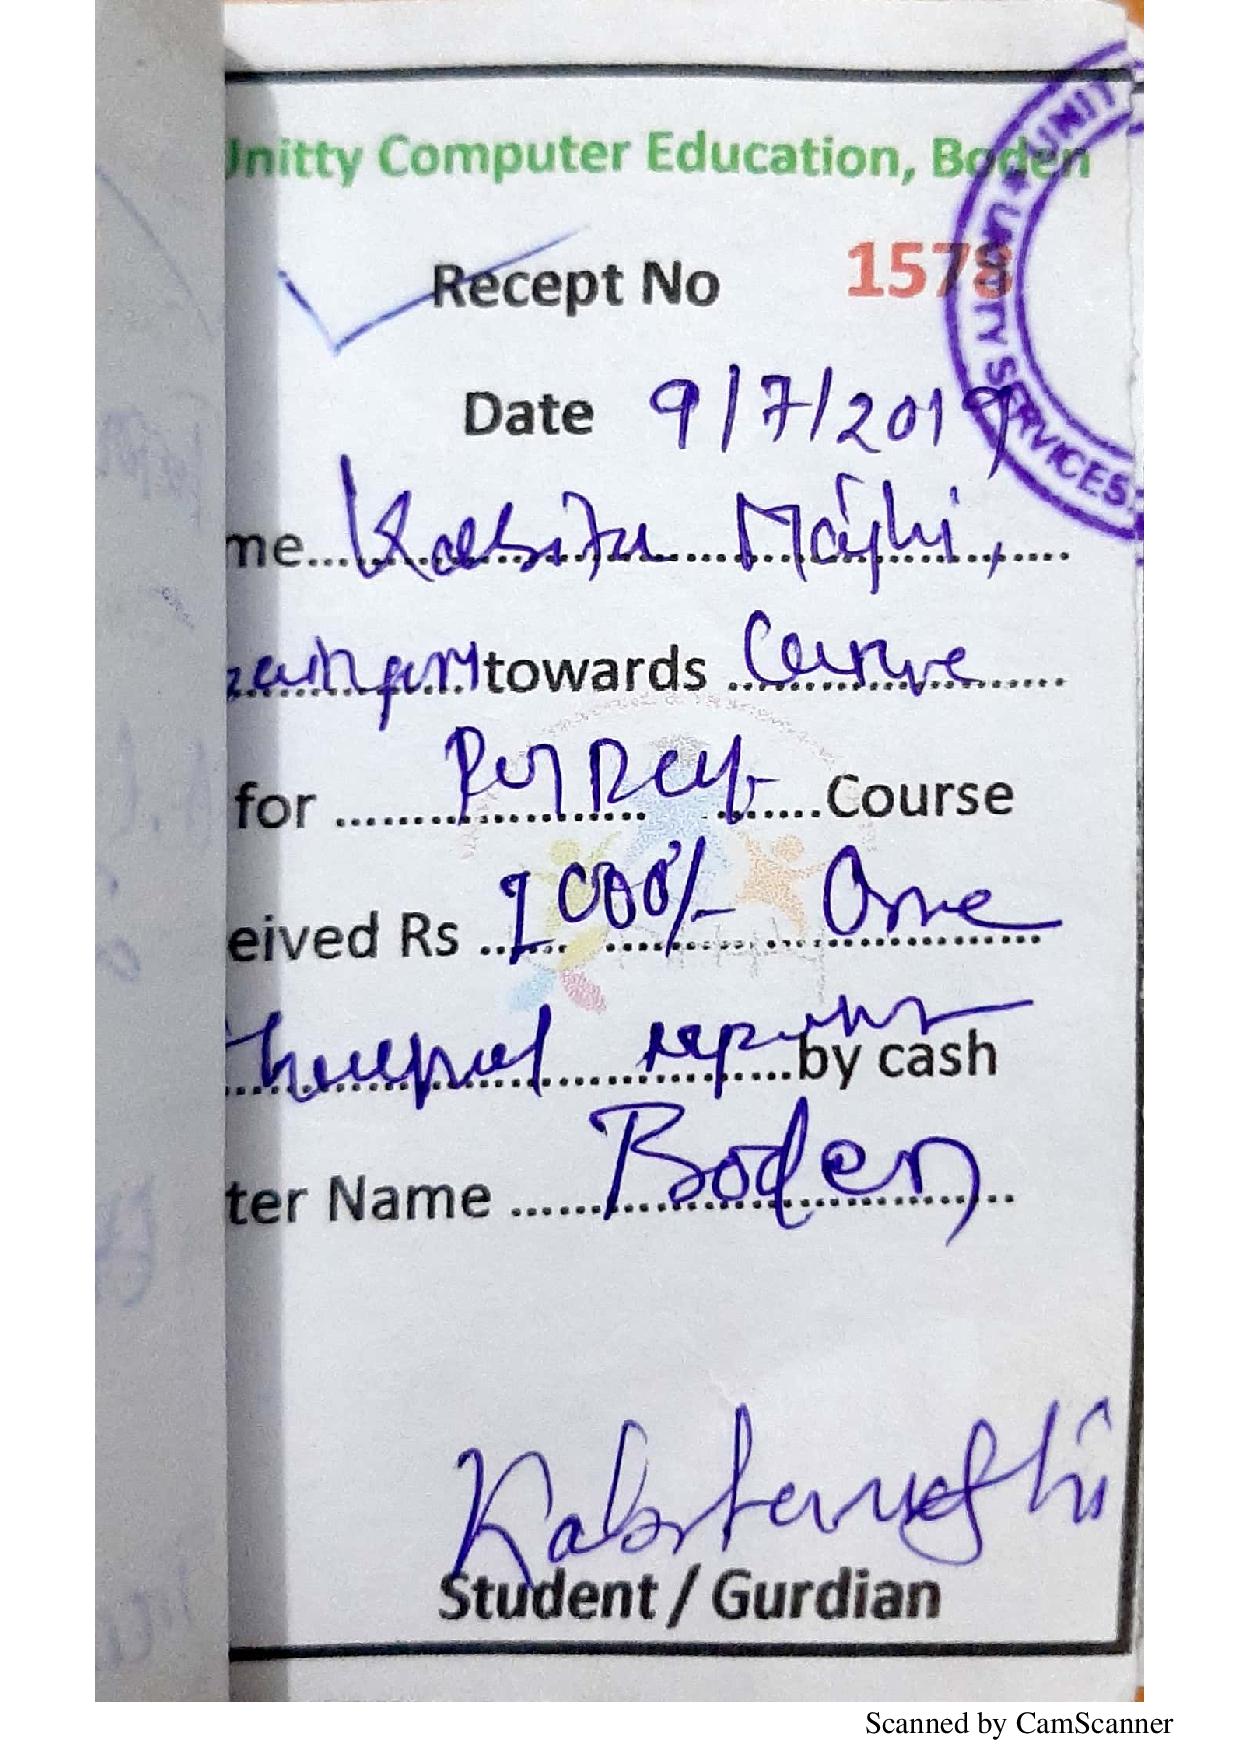 Unitty Computer Education, Boden
Recept No 1578
Date 9/7/2019
me... Kabita Majhi,
towards Course
for ... Course
eived Rs 1000/- One
by cash
ter Name Boden
Student / Gurdian
UNITY SERVICES
Scanned by CamScanner